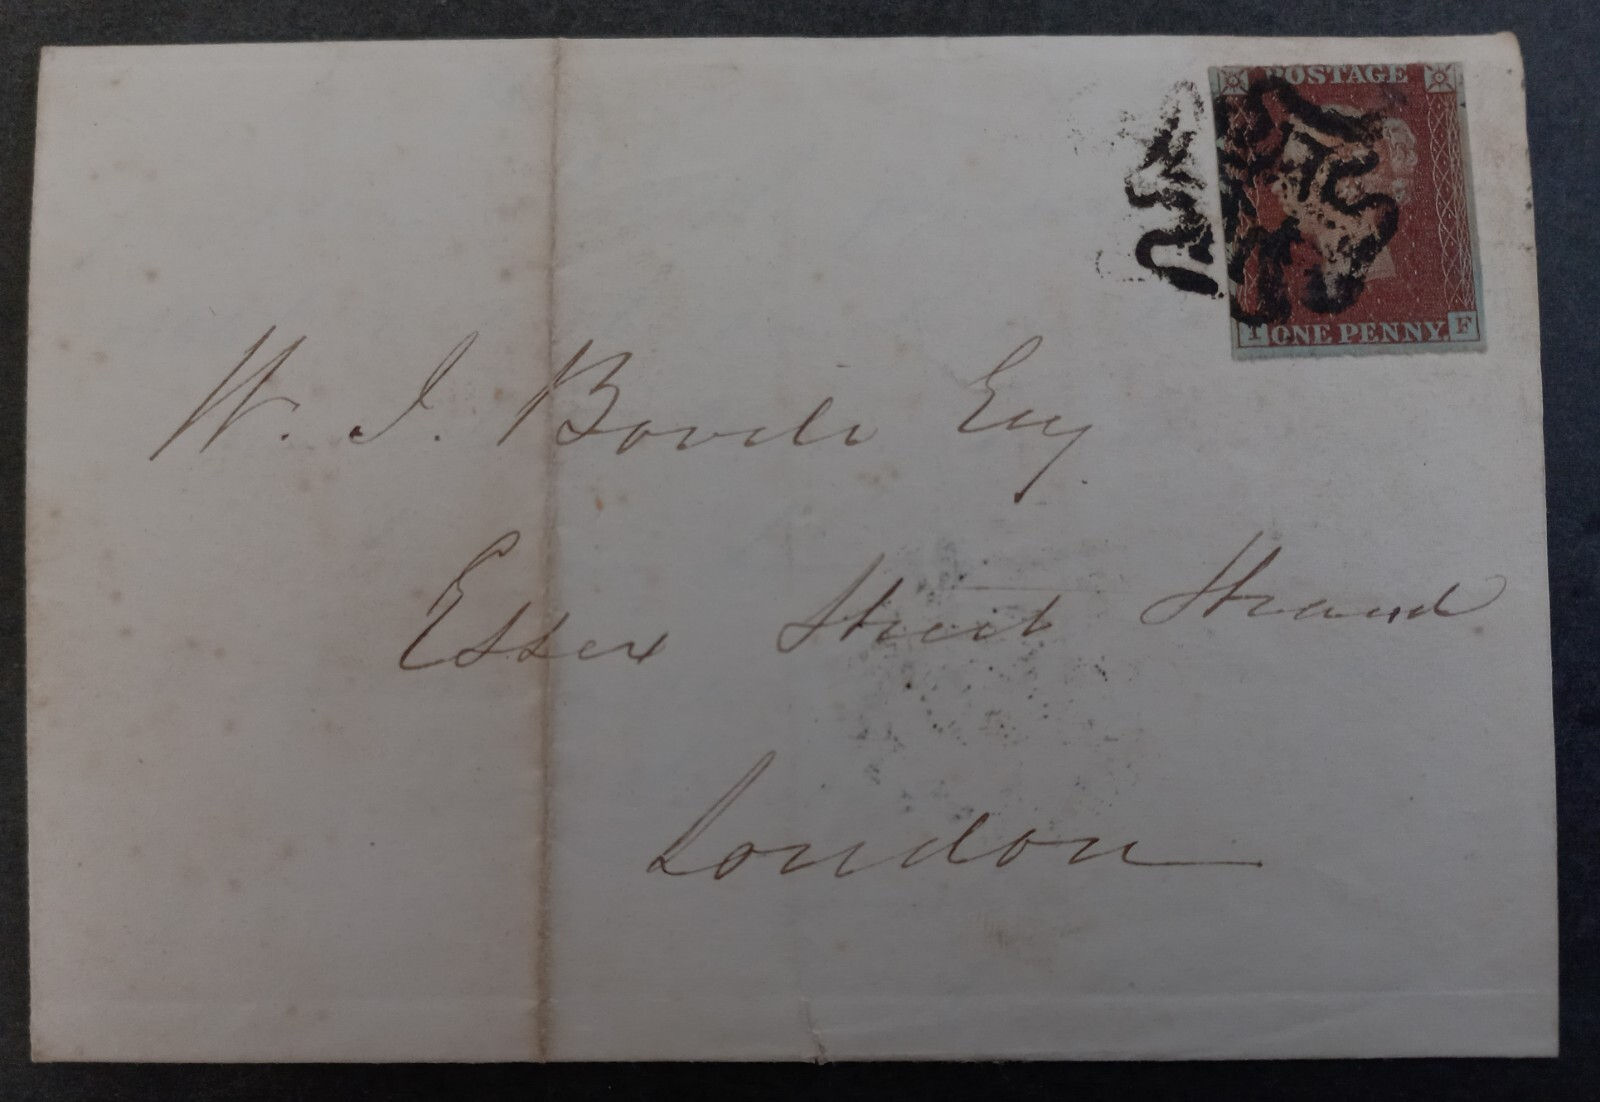 POSTAGE
ONE PENNY. F
W. J. Bovill Esq
Essex Street Strand
London